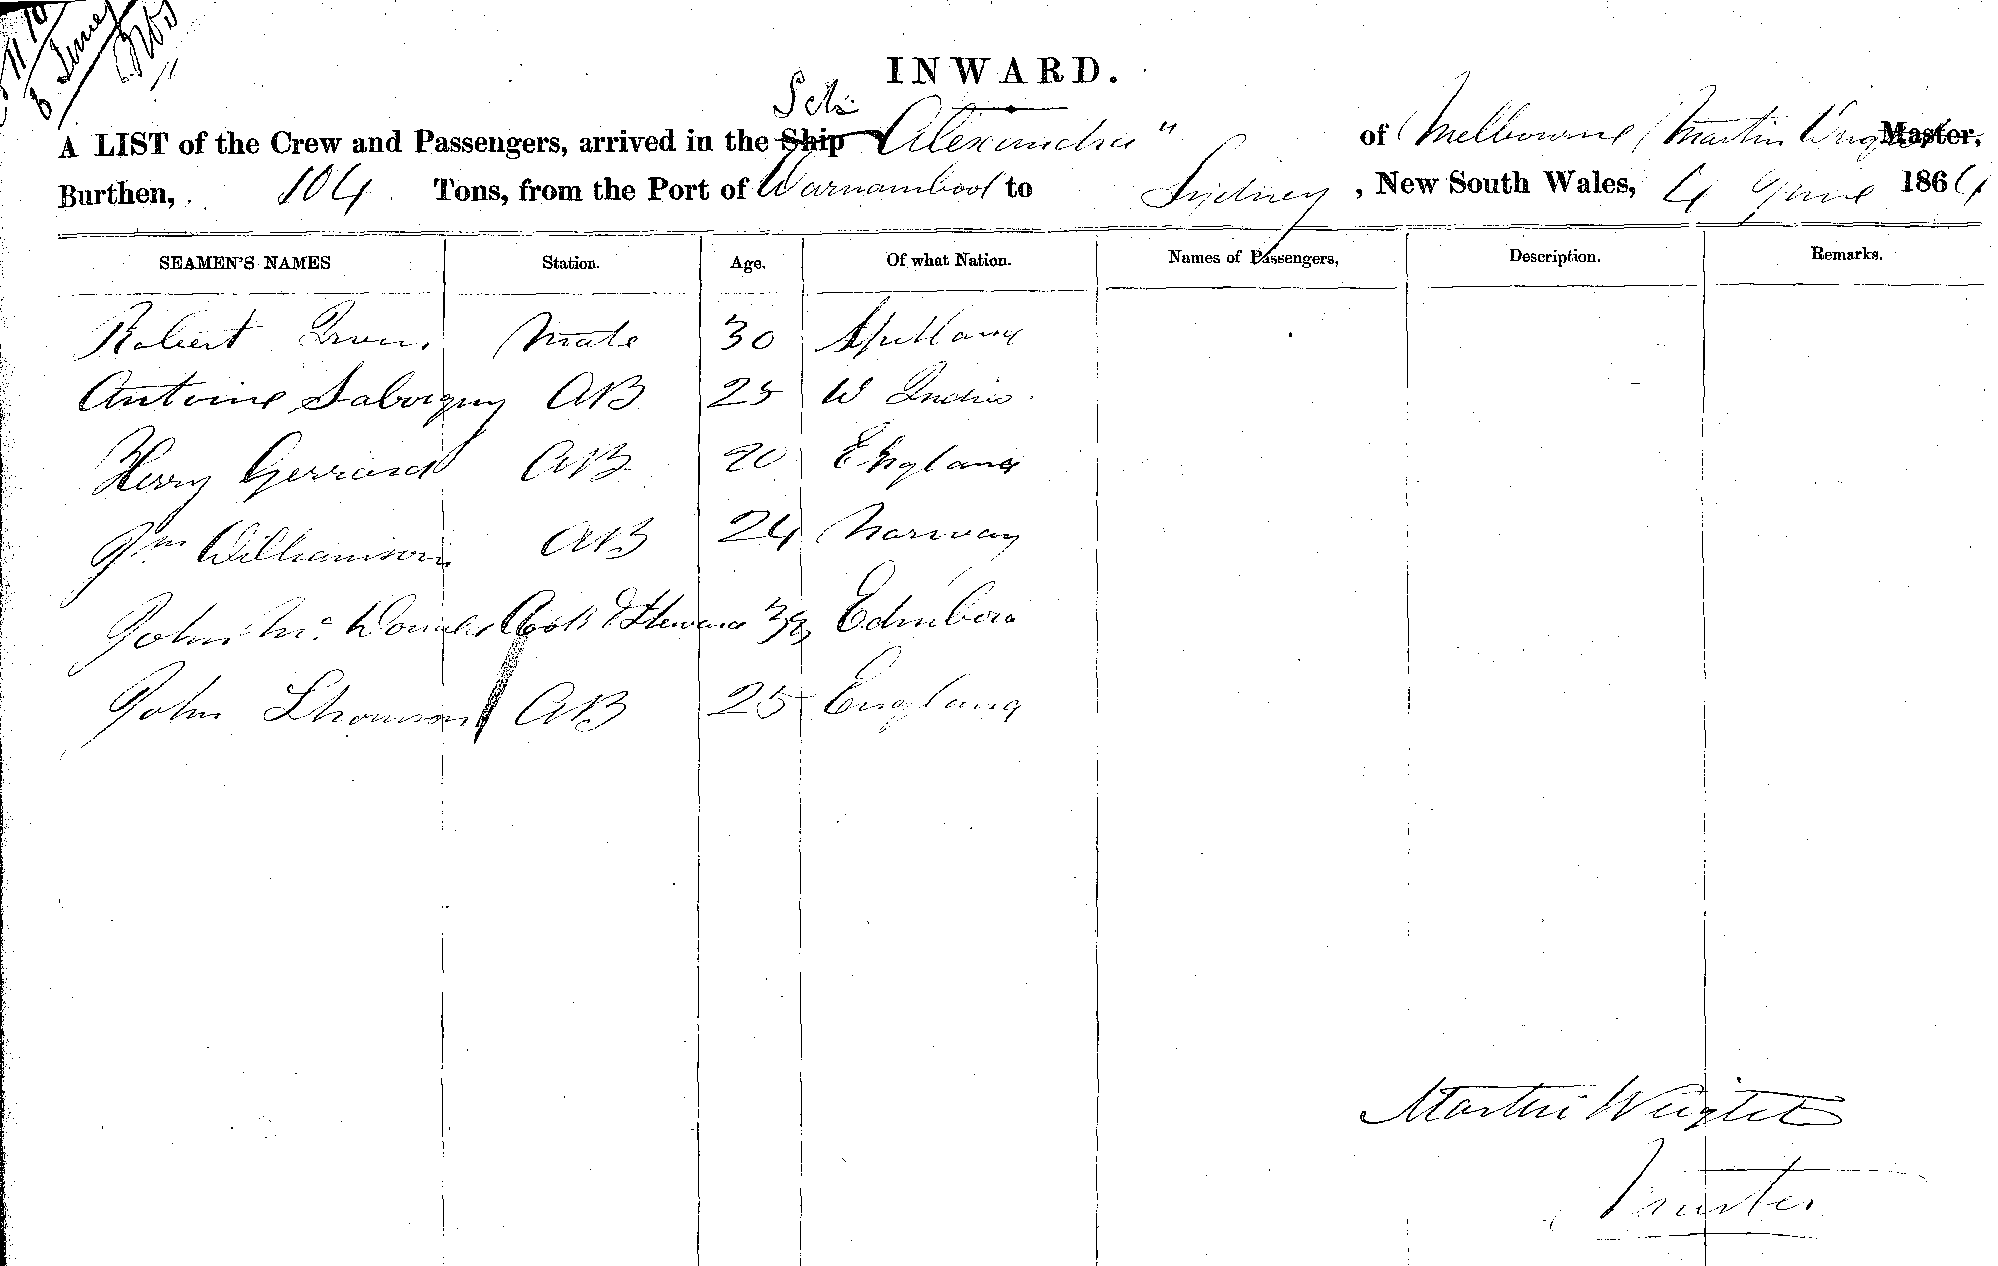 June
INWARD.
Schr
A LIST of the Crew and Passengers, arrived in the Ship Alexandra" of Melbourne Martin Wright Master,
Burthen, 104 Tons, from the Port of Warnambool to Sydney, New South Wales, 4 June 1864
SEAMEN'S NAMES Station. Age. Of what Nation. Names of Passengers, Description. Remarks.
Robert Mate 30
Antoine AB 25 W Indies
Henry Gerrard AB 20 England
Jn Williamson AB 24 Norway
John Mc Donald Cook & Steward 38 Edinboro
John Thomson AB 25 England
Martin Wright
Master